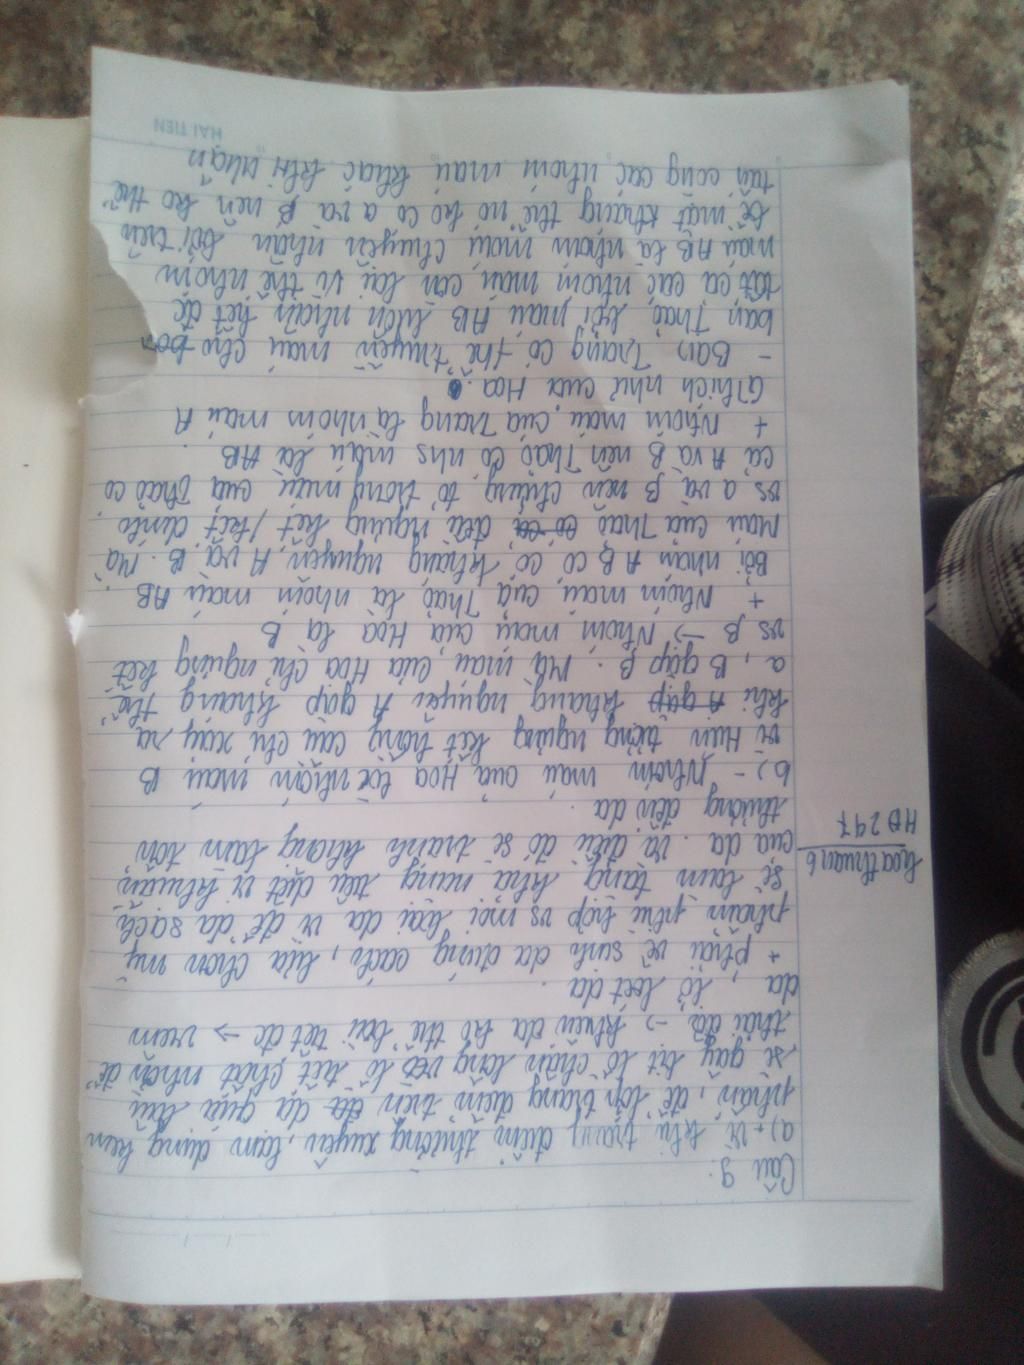 Câu 9:
a) + Vì khi trang điểm thường xuyên, lạm dụng kem
phấn, để lớp trang điểm trên da quá lâu
sẽ gây bít lỗ chân lông và lỗ tiết chất nhờn để
thải đồ → khiến da ko thể bài tiết đc → viêm
da, lở loét da.
+ phải vệ sinh da đúng cách, lựa chọn mỹ
phẩm phù hợp vs mọi loại da vì để da sạch
sẽ làm tăng khả năng tiêu diệt vi khuẩn
của da. Và điều đó sẽ tránh không làm tổn
thương đến da.
hoathuan6
HD297
b) - Nhóm máu của Hoa là nhóm máu B
vì Hiện tượng ngưng kết hồng cầu chỉ xảy ra
khi kháng nguyên A gặp kháng thể
α, B gặp β. Mà máu của Hoa chỉ ngưng kết
vs β → Nhóm máu của Hoa là B
+ Nhóm máu của Thảo là nhóm máu AB
Bởi nhóm AB có có kháng nguyên A và B. Mà
máu của Thảo đều ngưng kết / kết dính
vs α và β nên chứng tỏ trong máu của Thảo có
cả A và B nên Thảo có nhs máu là AB.
+ Nhóm máu của Trang là nhóm máu A
Gthích như của Hoa.
- Bạn Trang có thể truyền máu cho bạn
bạn Thảo bởi máu AB luôn nhận hết đc
tất cả các nhóm máu còn lại vì thế nhóm
máu AB là nhóm máu chuyên nhận bởi trên
bề mặt kháng thể nó ko có α và β nên ko thể
tấn công các nhóm máu khác khi nhận
HẢI TIẾN